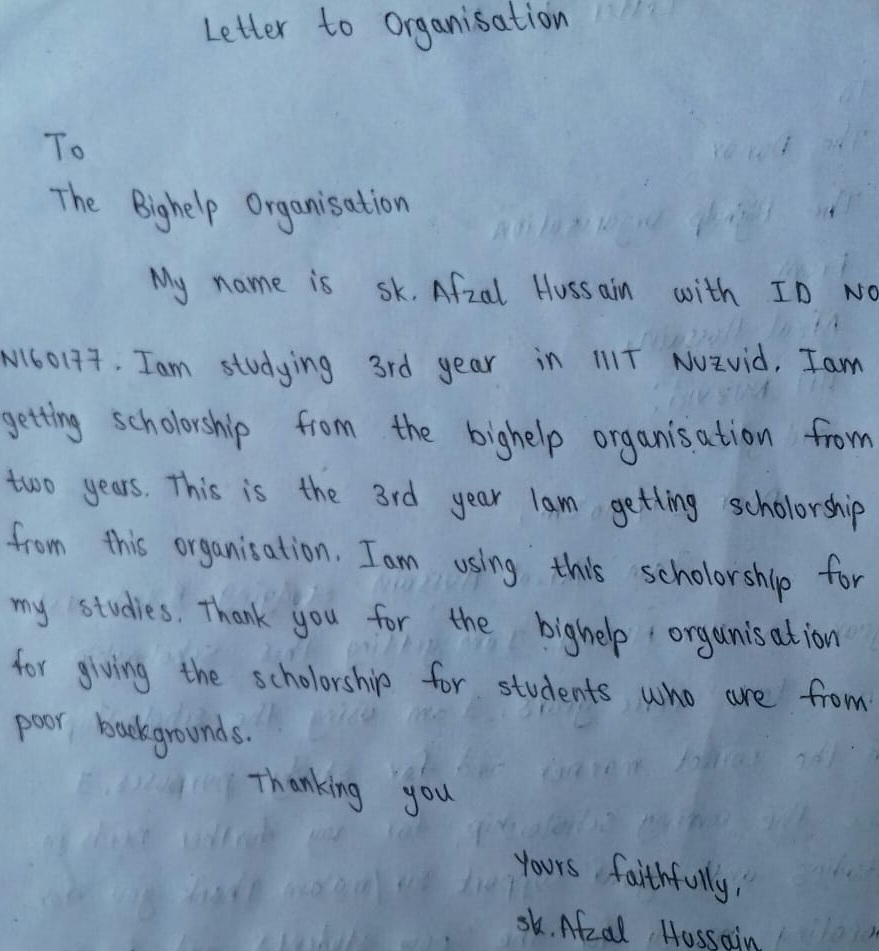 Letter to Organisation
To
The Bighelp Organisation
My name is sk. Afzal Hussain with ID NO
N160177. Iam studying 3rd year in IIIT Nuzvid. Iam
getting scholorship from the bighelp organisation from
two years. This is the 3rd year Iam getting scholorship
from this organisation. Iam using this scholorship for
my studies. Thank you for the bighelp organisation
for giving the scholorship for students who are from
poor backgrounds.
Thanking you
Yours faithfully,
sk. Afzal Hussain